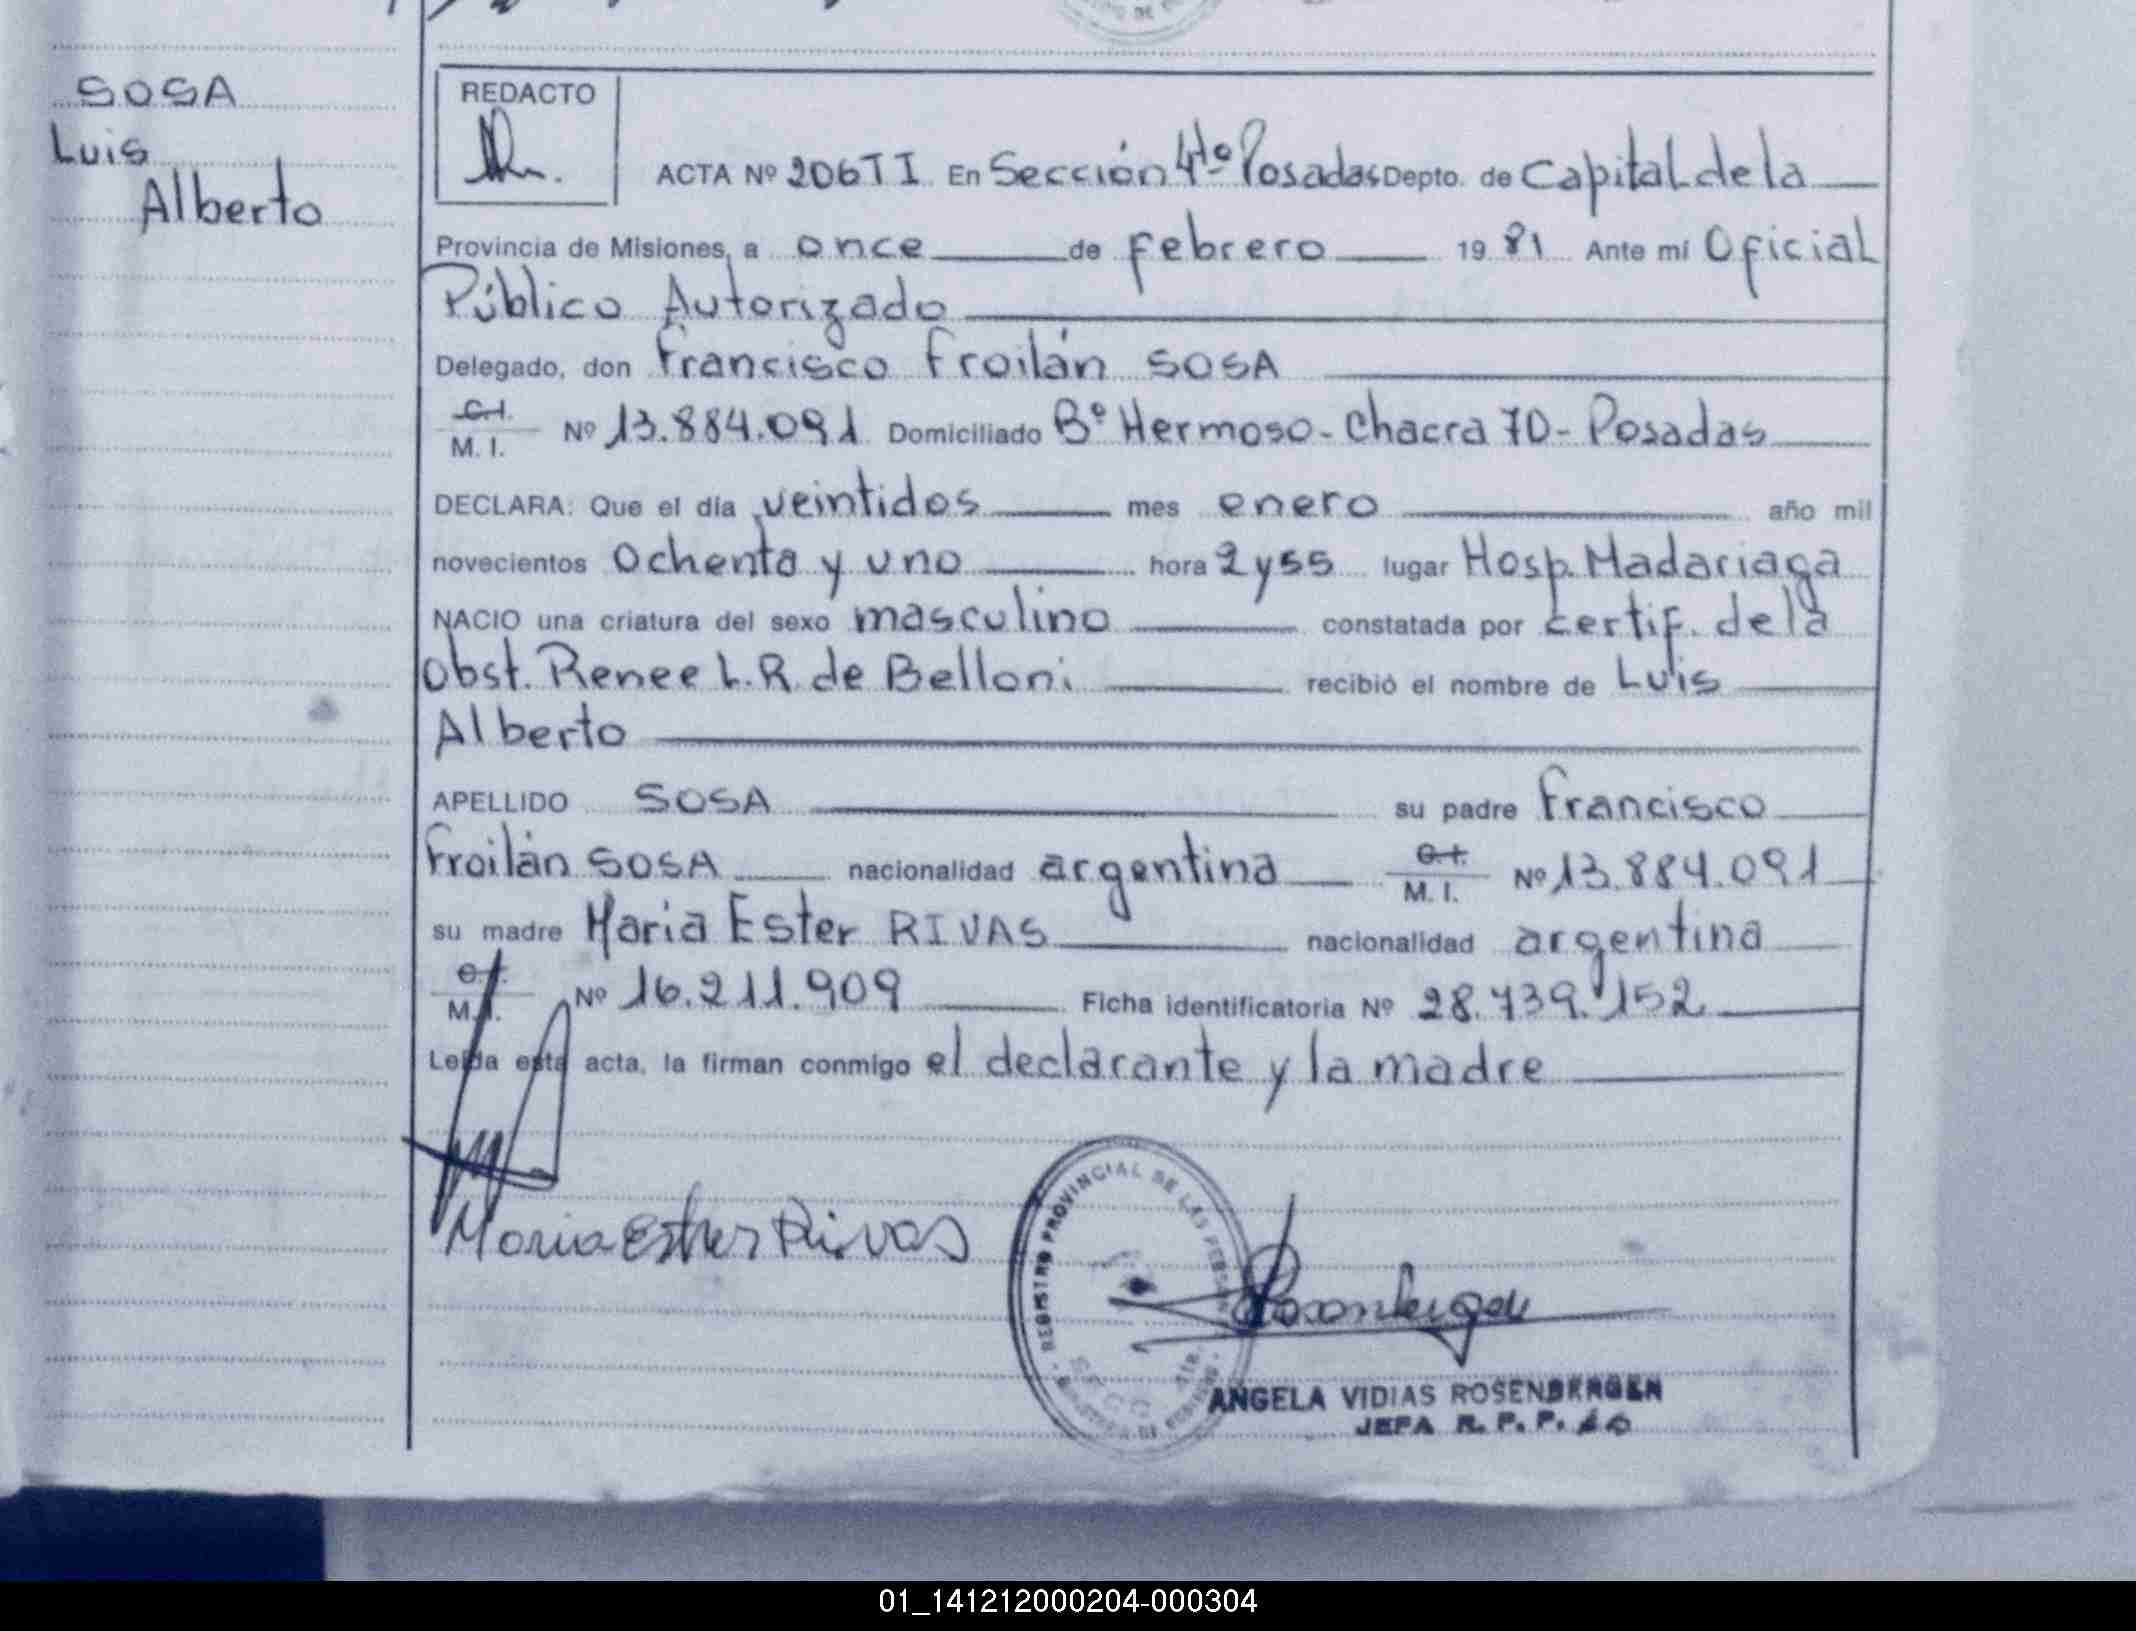 SOSA
Luis
Alberto
REDACTO
ACTA Nº 206TI En Sección 4tª Posadas Depto. de Capital de la
Provincia de Misiones, a once de febrero 1981 Ante mí Oficial
Público Autorizado
Delegado, don Francisco Froilán SOSA
C.I.
M. I. Nº 13.884.091 Domiciliado Bº Hermoso - Chacra 70 - Posadas
DECLARA: Que el día veintidos mes enero año mil
novecientos ochenta y uno hora 2 y 55 lugar Hosp. Madariaga
NACIO una criatura del sexo masculino constatada por certif. de la
Obst. Renee L. R. de Belloni recibió el nombre de Luis
Alberto
APELLIDO SOSA su padre Francisco
Froilán SOSA nacionalidad argentina C.I. M. I. Nº 13.884.091
su madre Maria Ester RIVAS nacionalidad argentina
C.I.
M. I. Nº 16.211.909 Ficha identificatoria Nº 28.739.152
Leída esta acta, la firman conmigo el declarante y la madre
Maria Ester Rivas
REGISTRO PROVINCIAL DE LAS PERSON
SECC. 4ta.
ANGELA VIDIAS ROSENBERGEN
JEFA R. P. P.
01_141212000204-000304